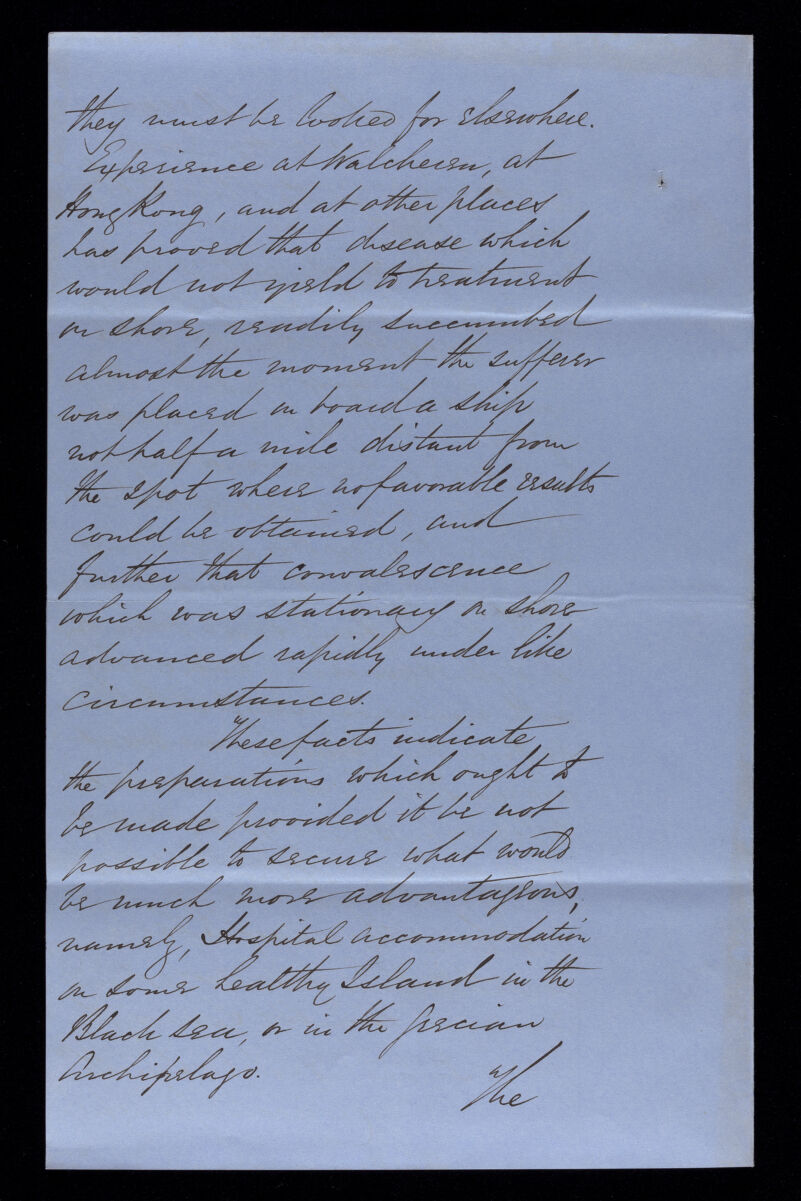 they must be looked for elsewhere.
Experience at Walcheren, at
Hong Kong, and at other places
has proved that disease which
would not yield to treatment
on shore, readily succumbed
almost the moment the sufferer
was placed on board a ship
not half a mile distant from
the spot where no favorable results
could be obtained, and
further that convalescence
which was stationary on shore
advanced rapidly under like
circumstances.
These facts indicate
the preparations which ought to
be made provided it be not
possible to secure what would
be much more advantageous,
namely, Hospital accommodation
on some healthy Island in the
Black sea, or in the Grecian
Archipelago.
The